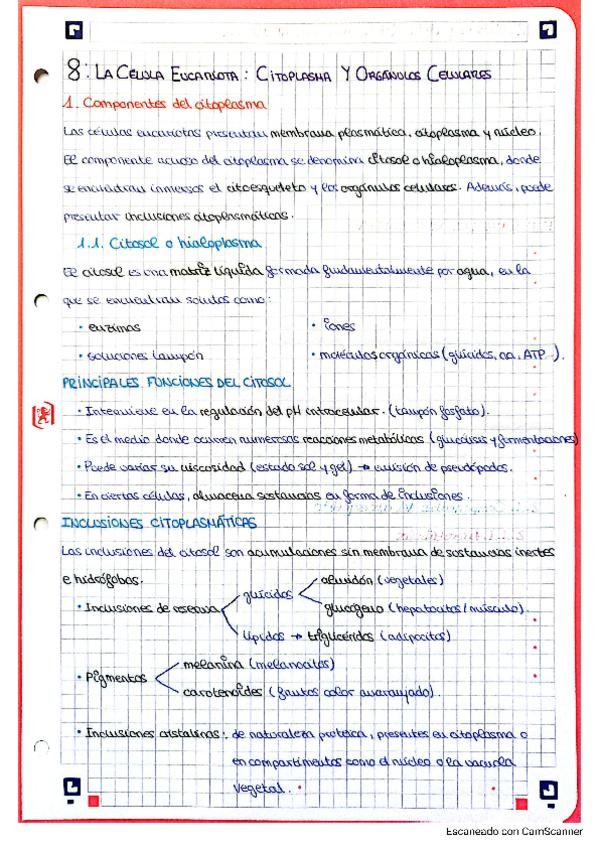 8: LA CÉLULA EUCARIOTA: CITOPLASMA Y ORGÁNULOS CELULARES
1. Componentes del citoplasma
Las células eucariotas presentan membrana plasmática, citoplasma y núcleo.
El componente acuoso del citoplasma se denomina citosol o hialoplasma, donde
se encuentran inmersos el citoesqueleto y los orgánulos celulares. Además, puede
presentar inclusiones citoplasmáticas.
1.1. Citosol o hialoplasma
El citosol es una matriz líquida formada fundamentalmente por agua, en la
que se encuentran solutos como:
· enzimas · iones
· soluciones tampón · moléculas orgánicas (glúcidos, aa, ATP...).
PRINCIPALES FUNCIONES DEL CITOSOL
· Interviene en la regulación del pH intracelular. (tampón fosfato).
· Es el medio donde ocurren numerosas reacciones metabólicas (glucólisis y fermentaciones)
· Puede variar su viscosidad (estado sol y gel) → emisión de pseudópodos.
· En ciertas células, almacena sustancias en forma de inclusiones.
INCLUSIONES CITOPLASMÁTICAS
Las inclusiones del citosol son acumulaciones sin membrana de sustancias inertes
e hidrófobas.
almidón (vegetales)
glúcidos
· Inclusiones de reserva glucógeno (hepatocitos/músculo).
lípidos → triglicéridos (adipocitos)
melanina (melanocitos)
· Pigmentos
carotenoides (frutos color anaranjado).
· Inclusiones cristalinas: de naturaleza proteica, presentes en citoplasma o
en compartimentos como el núcleo o la vacuola
vegetal.
Escaneado con CamScanner